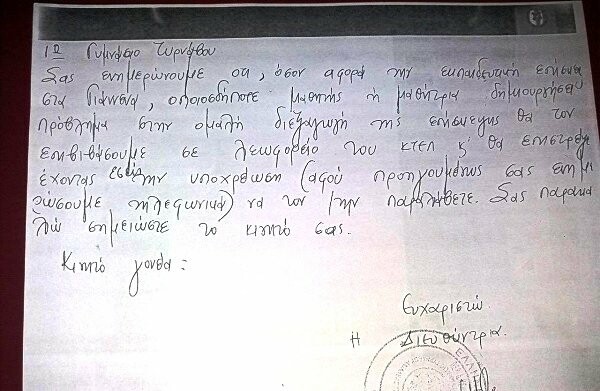 1ο Γυμνάσιο Τυρνάβου
Σας ενημερώνουμε οτι, όσον αφορά την εκπαιδευτική επίσκεψη
στα Γιάννενα, οποιοσδήποτε μαθητής ή μαθήτρια δημιουργήσει
πρόβλημα στην ομαλή διεξαγωγή της επίσκεψης θα τον
επιβιβάσουμε σε λεωφορείο του κτελ κ' θα επιστρέψει
έχοντας εσείς την υποχρέωση (αφού προηγουμένως σας ενημε
ρώσουμε τηλεφωνικά) να τον/την παραλάβετε. Σας παρακα
λώ σημειώστε το κινητό σας.
Κινητό γονέα:
Ευχαριστώ
Η Διευθύντρια.
ΕΛΛΗ